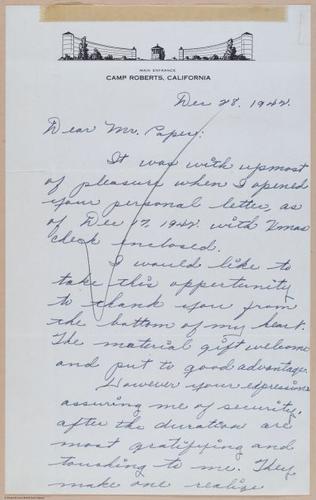 MAIN ENTRANCE
CAMP ROBERTS, CALIFORNIA
Dec 28, 1942.
Dear Mr.
It was with upmost
of pleasure when I opened
your personal letter, as
of Dec 17, 1942. with Xmas
check enclosed.
I would like to
take this opportunity
to thank you from
the bottom of my heart.
The material gift welcome
and put to good advantage.
However your expressions
assuring me of security,
after the duration are
most gratifying and
touching to me. They
make one realize